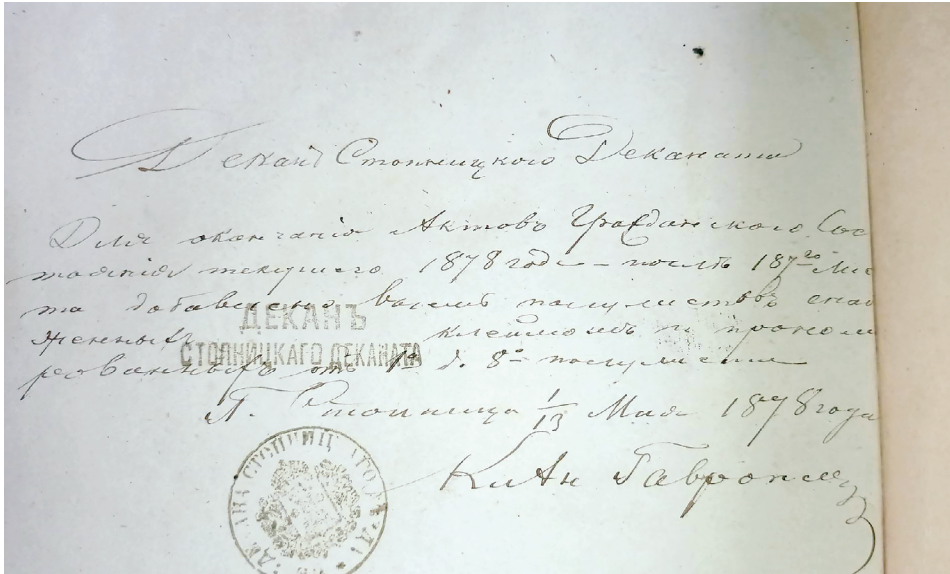 Деканъ Стопницкого Деканата
Для окончанія Актовъ Гражданского Сос
тоянія текущего 1878 года – послѣ 187го Лис
та добавлено восемь полулистовъ снаб
женныхъ клеймомъ и прономе
рованныхъ отъ 1о д. 8о полулиста
ДЕКАНЪ
СТОПНИЦКАГО ДЕКАНАТА
Г. Стопница 1/13 Мая 1878 года